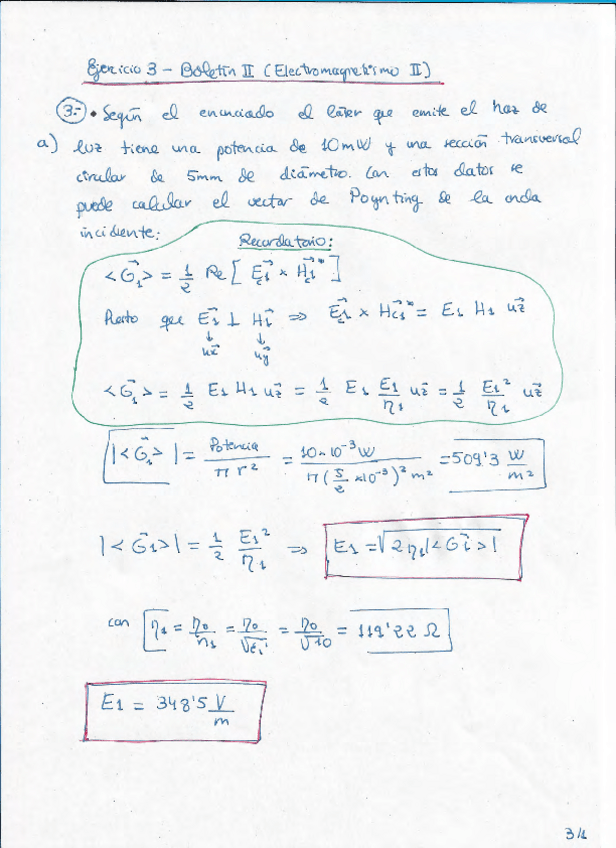 Ejercicio 3 - Boletín II (Electromagnetismo II)
3.- • Según el enunciado el láser que emite el haz de
a) luz tiene una potencia de 10mW y una sección transversal
circular de 5mm de diámetro. Con estos datos se
puede calcular el vector de Poynting de la onda
incidente:
Recordatorio:
<G₁⃗> = 1/2 Re[E⃗c1 × H⃗c1*]
Puesto que E⃗1 ⊥ H⃗1 ⇒ E⃗c1 × H⃗c1* = E1 H1 uz⃗
↓ ↓
ux⃗ uy⃗
<G₁⃗> = 1/2 E1 H1 uz⃗ = 1/2 E1 E1/η1 uz⃗ = 1/2 E1²/η1 uz⃗
|<G₁⃗>| = Potencia/π r² = 10·10⁻³W/π(5/2 ×10⁻³)² m² = 509'3 W/m²
|<G⃗1>| = 1/2 E1²/η1 ⇒ E1 = √2η1|<G⃗i>|
con η1 = η0/n1 = η0/√ε1 = η0/√10 = 119'22 Ω
E1 = 348'5 V/m
3/1